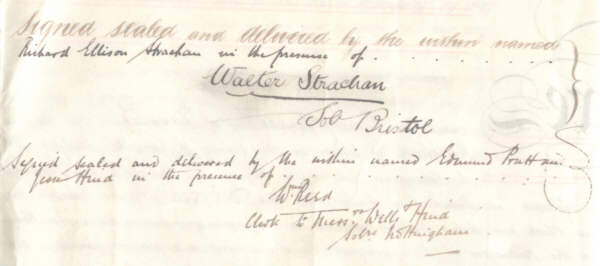 Signed sealed and delivered by the within named
Richard Ellison Strachan in the presence of . . . . . . . . . .
Walter Strachan
Solr Bristol
Signed sealed and delivered by the within named Edmund
Hind in the presence of . . . . . . . . . .
Wm Reed
Clerk to Messrs Wells & Hind
Solrs Nottingham